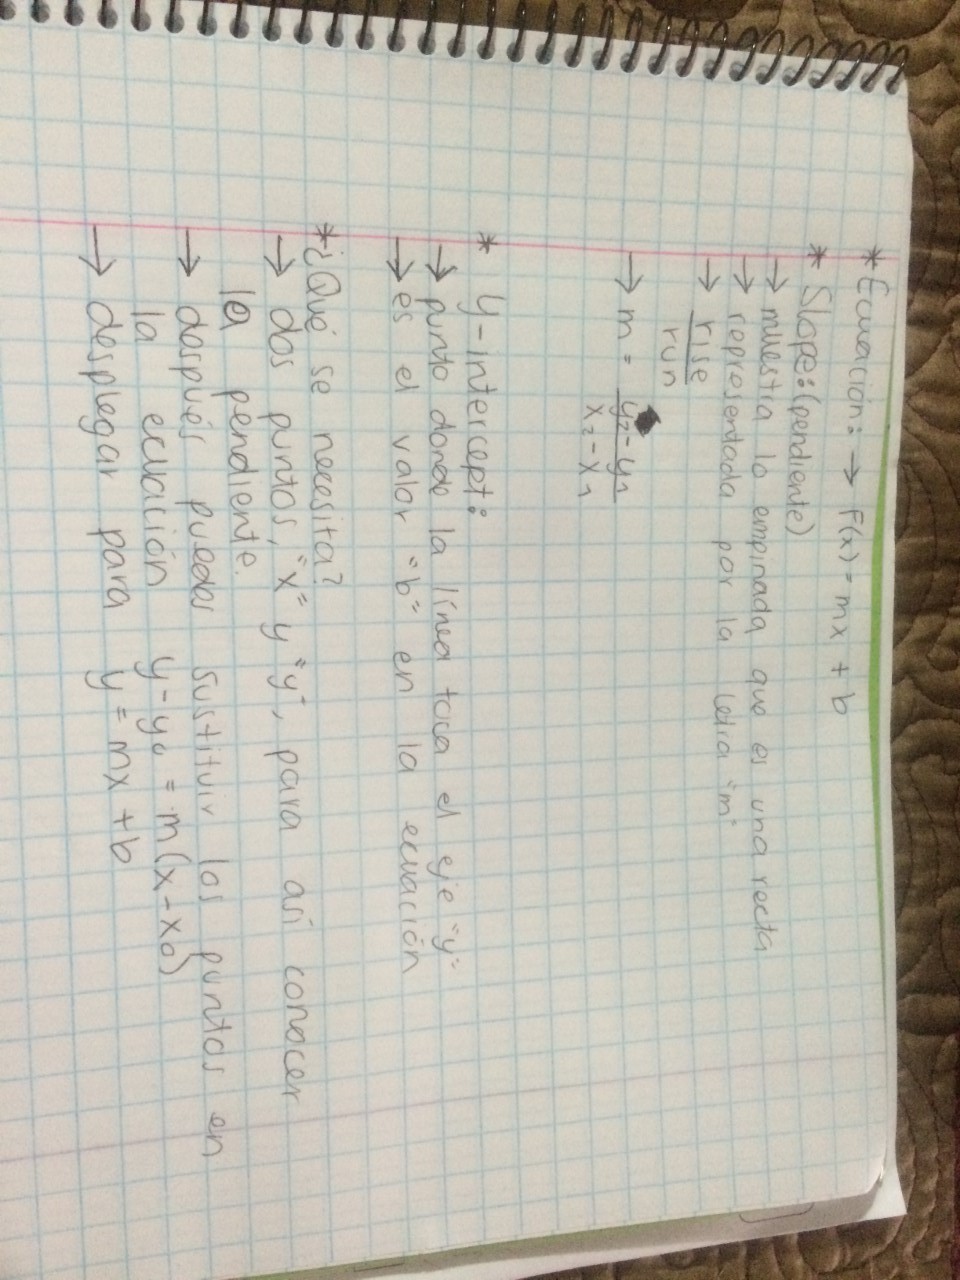 * Ecuación: → F(x) = mx + b
* Slope: (pendiente)
→ muestra lo empinada que es una recta
→ representada por la letra "m"
→ rise
run
→ m = y₂ - y₁
x₂ - x₁
* y-intercept:
→ punto donde la línea toca el eje "y"
→ es el valor "b" en la ecuación
* ¿Qué se necesita?
→ dos puntos, "x" y "y", para así conocer
la pendiente.
→ después puedes sustituir los puntos en
la ecuación y - y₀ = m(x - x₀)
→ desplegar para y = mx + b